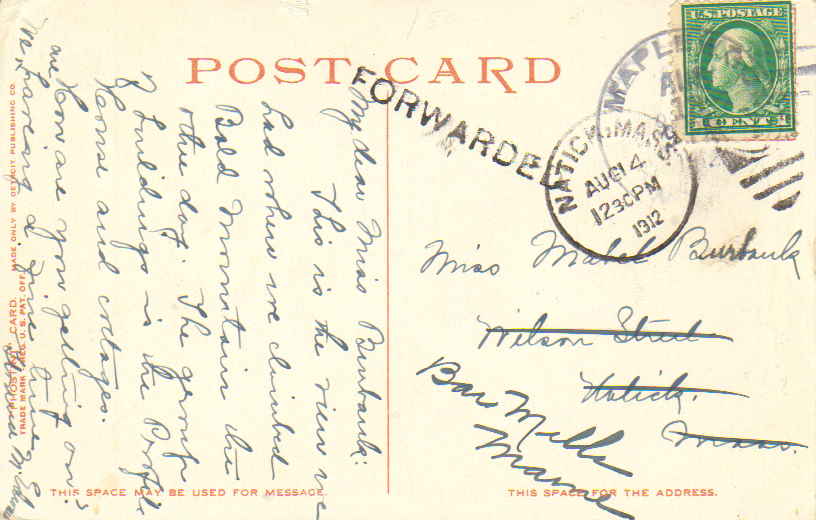 POST CARD
FORWARDED
MAPLE
AU
NATICK, MASS.
AUG 14
1230PM
1912
U.S. POSTAGE
1 CENT 1
My dear Miss Burbank:
This is the view we
had where we climbed
Bald Mountain the
other day. The group
of buildings is the Profile
House and cottages.
How are you getting on?
We are having a fine time.
Miss Mabel Burbank
Wilson Street
Natick.
Mass.
Bar Mills
Maine
"PHOSTINT" CARD.
TRADE MARK REG. U.S. PAT. OFF. MADE ONLY BY DETROIT PUBLISHING CO.
THIS SPACE MAY BE USED FOR MESSAGE.
THIS SPACE FOR THE ADDRESS.